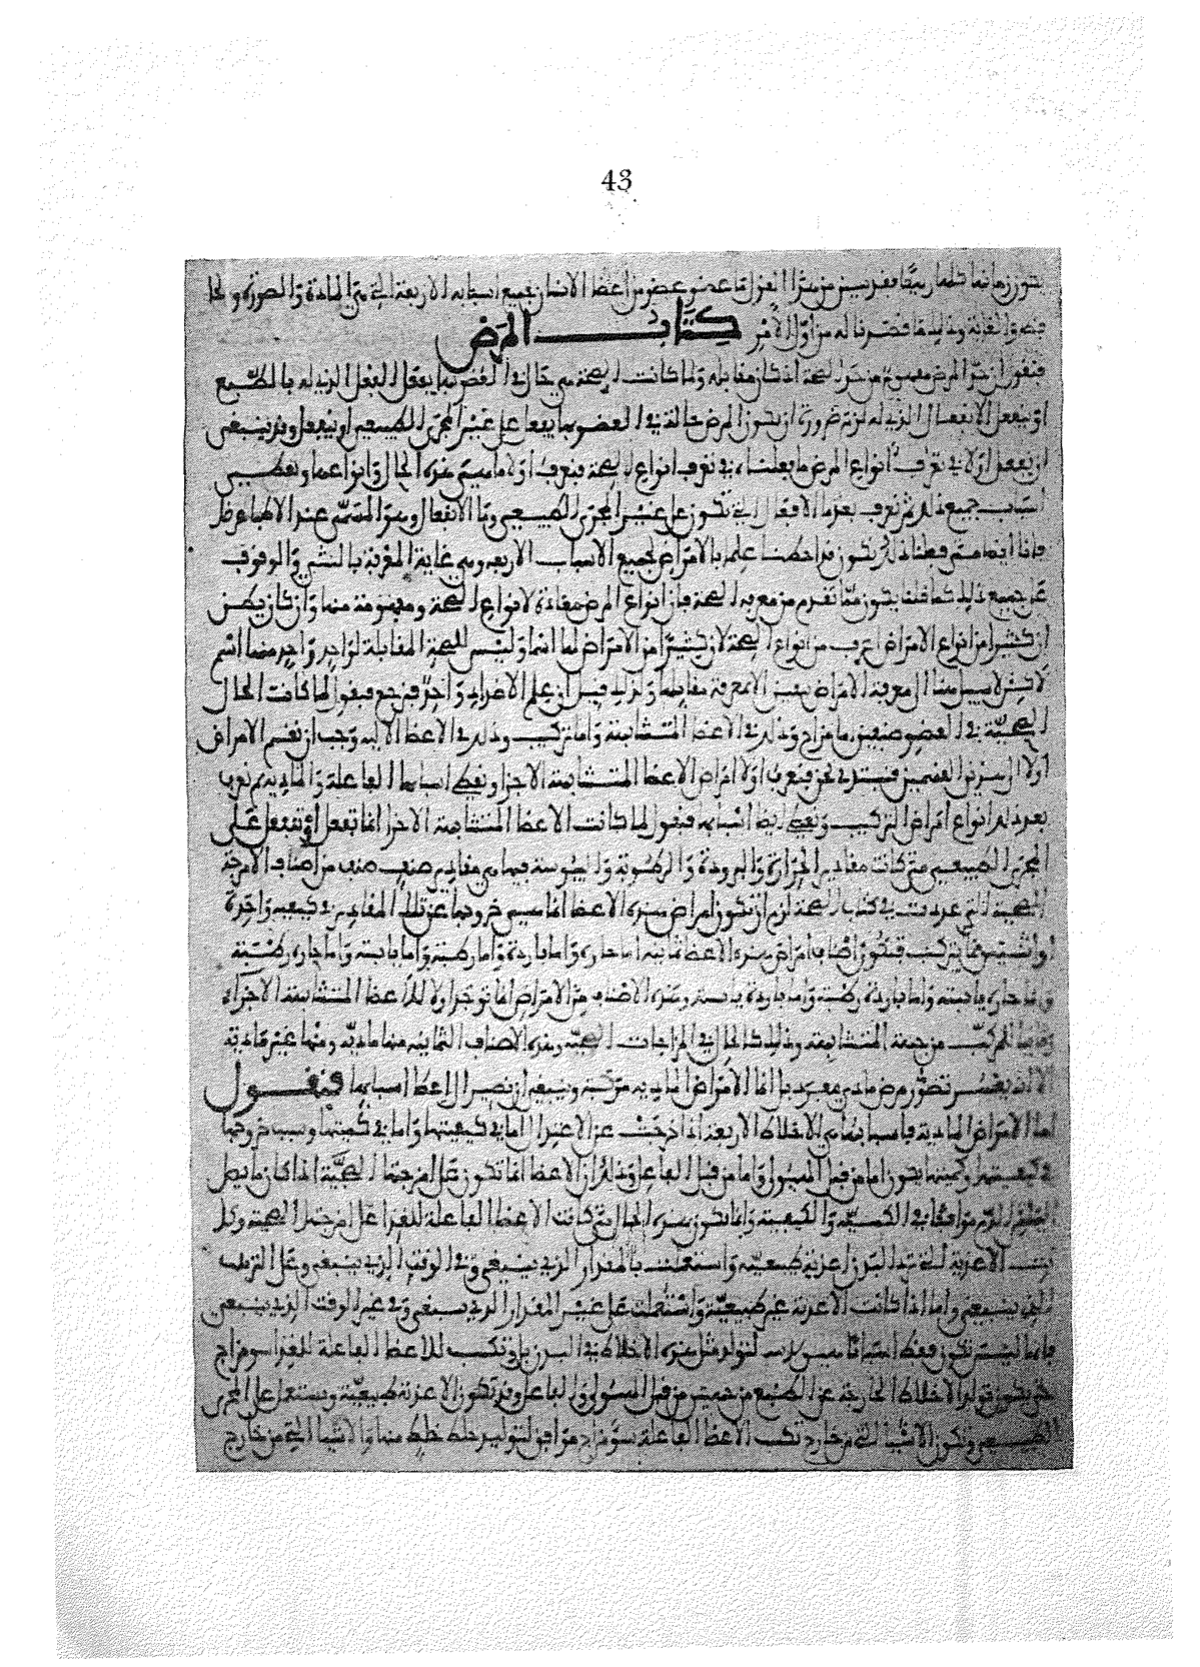 43
فقد تبين من هذا القول في عضو عضو من أعضا الانسان جميع اسبابه الاربعة التي هي المادة والصورة
والغاية وذلك ما قصدنا له من أول الأمر كتاب المرض
فنقول ان حد المرض مفهوم من حد الصحة اذ كان مقابله ولما كانت الصحة هي حال في العضو بها يفعل الفعل الذي له بالطبع
أو ينفعل الانفعال الذي له لزم ضرورة ان يكون المرض حالة في العضو بها يفعل على غير المجرى الطبيعي او ينفعل وقد ينبغي
ان نفعل اولا في تعرف أنواع المرض ما فعلنا في تعرف انواع الصحة فنعرف اولا ما هي هذه الحال وانواعها ونعطي
اسباب جميع ذلك ثم نعرف بعد هذا الافعال التي تكون على غير المجرى الطبيعي وبها الانفعال وهو المسمى عند الاطبا عرضا
فانا ايضا متى فعلنا ذلك نكون قد احطنا علما بالامراض بجميع الاسباب الاربعة وهي غاية المعرفة بالشي والوقوف
على جميع ذلك كما قلنا يكون مما تقدم من معرفة الصحة فان انواع المرض مضادة لانواع الصحة ومفهومة منها وان كان يظن
ان كثيرا من انواع الامراض اعرف من انواع الصحة لان كثيرا من الامراض لها اسما وليس للصحة المقابلة لواحد واحد منها اسم
لاكن لا سبيل الى معرفة الامراض بغير معرفة مقابلها ولذلك قيل ان علم الاضداد واحد فنرجع فنقول لما كانت الحال
الصحية في العضو صنفين اما مزاج وذلك في الاعضا المتشابهة واما تركيب وذلك في الاعضا الالية وجب ان نقسم الامراض
اولا الى هذين القسمين فنبتدئ نحن فنعرف اولا امراض الاعضا المتشابهة الاجزا ونعطي اسبابها الفاعلة والمادية ثم نعرف
بعد ذلك انواع امراض التركيب ونعطي ايضا اسبابه فنقول لما كانت الاعضا المتشابهة الاجزا انما تفعل أو تنفعل على
المجرى الطبيعي متى كانت مقادير الحرارة والبرودة والرطوبة واليبوسة فيها هي مقادير صنف صنف من أصناف الامزجة
الصحية التي عددت في كتاب الصحة لزم ان تكون امراض هذه الاعضا انما هي خروجها عن تلك المقادير في كيفية واحدة
او اثنتين مما يتركب فتكون أصناف امراض هذه الاعضا ثمانية اما حارة واما باردة واما رطبة واما يابسة واما حارة رطبة
واما حارة يابسة واما باردة رطبة واما باردة يابسة وهذه الاصناف من الامراض انما توجد اولا للاعضا المتشابهة الاجزاء
المركب من جهة المتشابهة وذلك كالحال في المزاجات الصحية وهذه الاصناف الثمانية منها مادية ومنها غير مادية
الا انه يعسر تصور مرض مادي مفرد بل انما الامراض المادية مركبة وينبغي ان نصير الى اعطا اسبابها فنقول
اما الامراض المادية فاسبابها هي الاخلاط الاربعة اذا خرجت عن الاعتدال اما في كيفيتها واما في كميتها وسبب خروجها
في كيفيتها وكميتها يكون اما من قبل الهيولى واما من قبل الفاعل وذلك ان الاعضا انما تكون على امزجتها الصحية اذا كان ما يصل
اليها من الدم موافقا في الكمية والكيفية وانما تكون بهذه الحال متى كانت الاعضا الفاعلة للغذا على امزجتها الصحية وكل
الاغذية التي ترد البدن اغذية طبيعية واستعملت بالمقدار الذي ينبغي وفي الوقت الذي ينبغي وعلى الترتيب
الذي ينبغي واما اذا كانت الاغذية غير طبيعية واستعملت على غير المقدار الذي ينبغي وفي غير الوقت الذي ينبغي
فانها ليس تكون فقط اسبابا لتولد مثل هذه الاخلاط في البدن بل وتكسب الاعضا الفاعلة للغذا سو مزاج
حتى يكون تولد الاخلاط الخارجة عن الطبع من جهتين من قبل الهيولى والفاعل وقد تكون الاغذية طبيعية وتستعمل على المجرى
الطبيعي وتكون الاشيا التي من خارج تكسب الاعضا الفاعلة سو مزاج موافق لتوليد خلط خلط منها والاشيا التي من خارج